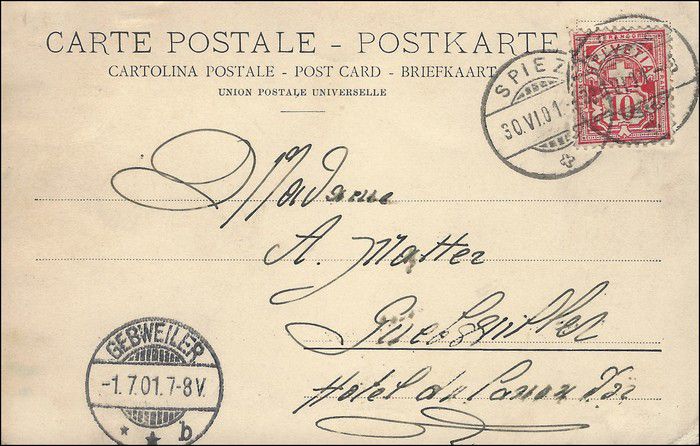 CARTE POSTALE - POSTKARTE
CARTOLINA POSTALE - POST CARD - BRIEFKAART
UNION POSTALE UNIVERSELLE
SPIEZ
30.VI.01
FRANCO
HELVETIA
10
Madame
A. Matter
Guebwiller
Hôtel du Canon d'or
GEBWEILER
-1.7.01.7-8V.
b